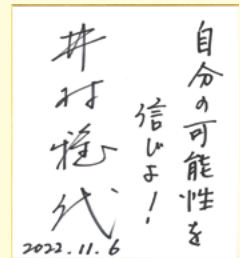 自分の可能性を
信じよ!
井村雅代
2022.11.6